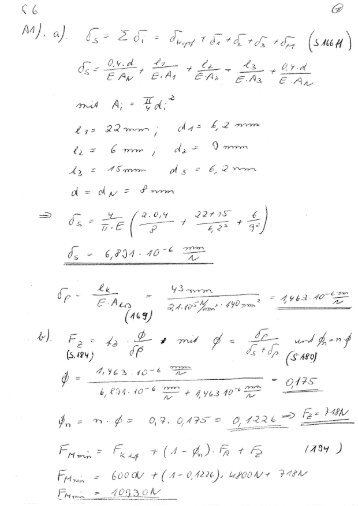 S 6
A1). a) δs = Σ δi = δKopf + δ1 + δ2 + δ3 + δM (S166 ff)
δs = 0,4·d / E·AN + l1 / E·A1 + l2 / E·A2 + l3 / E·A3 + 0,4·d / E·AN
mit Ai = π/4 di²
l1 = 22 mm ; d1 = 6,2 mm
l2 = 6 mm ; d2 = 9 mm
l3 = 15 mm d3 = 6,2 mm
d = dN = 8 mm
⇒ δs = 4 / π·E ( 2·0,4 / 8 + 22+15 / 6,2² + 6 / 9² )
δs = 6,891·10⁻⁶ mm/N
δp = lk / E·Aers = 43 mm / 2,1·10⁵ N/mm² · 140 mm² = 1,463·10⁻⁶ mm/N
(169)
b). FZ = fZ · ϕ / δp mit ϕ = δp / δs + δp und ϕn = n ϕ
(S.184) (S 180)
ϕ = 1,463·10⁻⁶ mm/N / 6,891·10⁻⁶ mm/N + 1,463·10⁻⁶ mm/N = 0,175
ϕn = n·ϕ = 0,7 · 0,175 = 0,1226 ⇒ FZ = 718N
FMmin = FKerf + (1 - ϕn)·FA + FZ (194)
FMmin = 6000N + (1 - 0,1226)·4800N + 718N
FMmin = 10930N